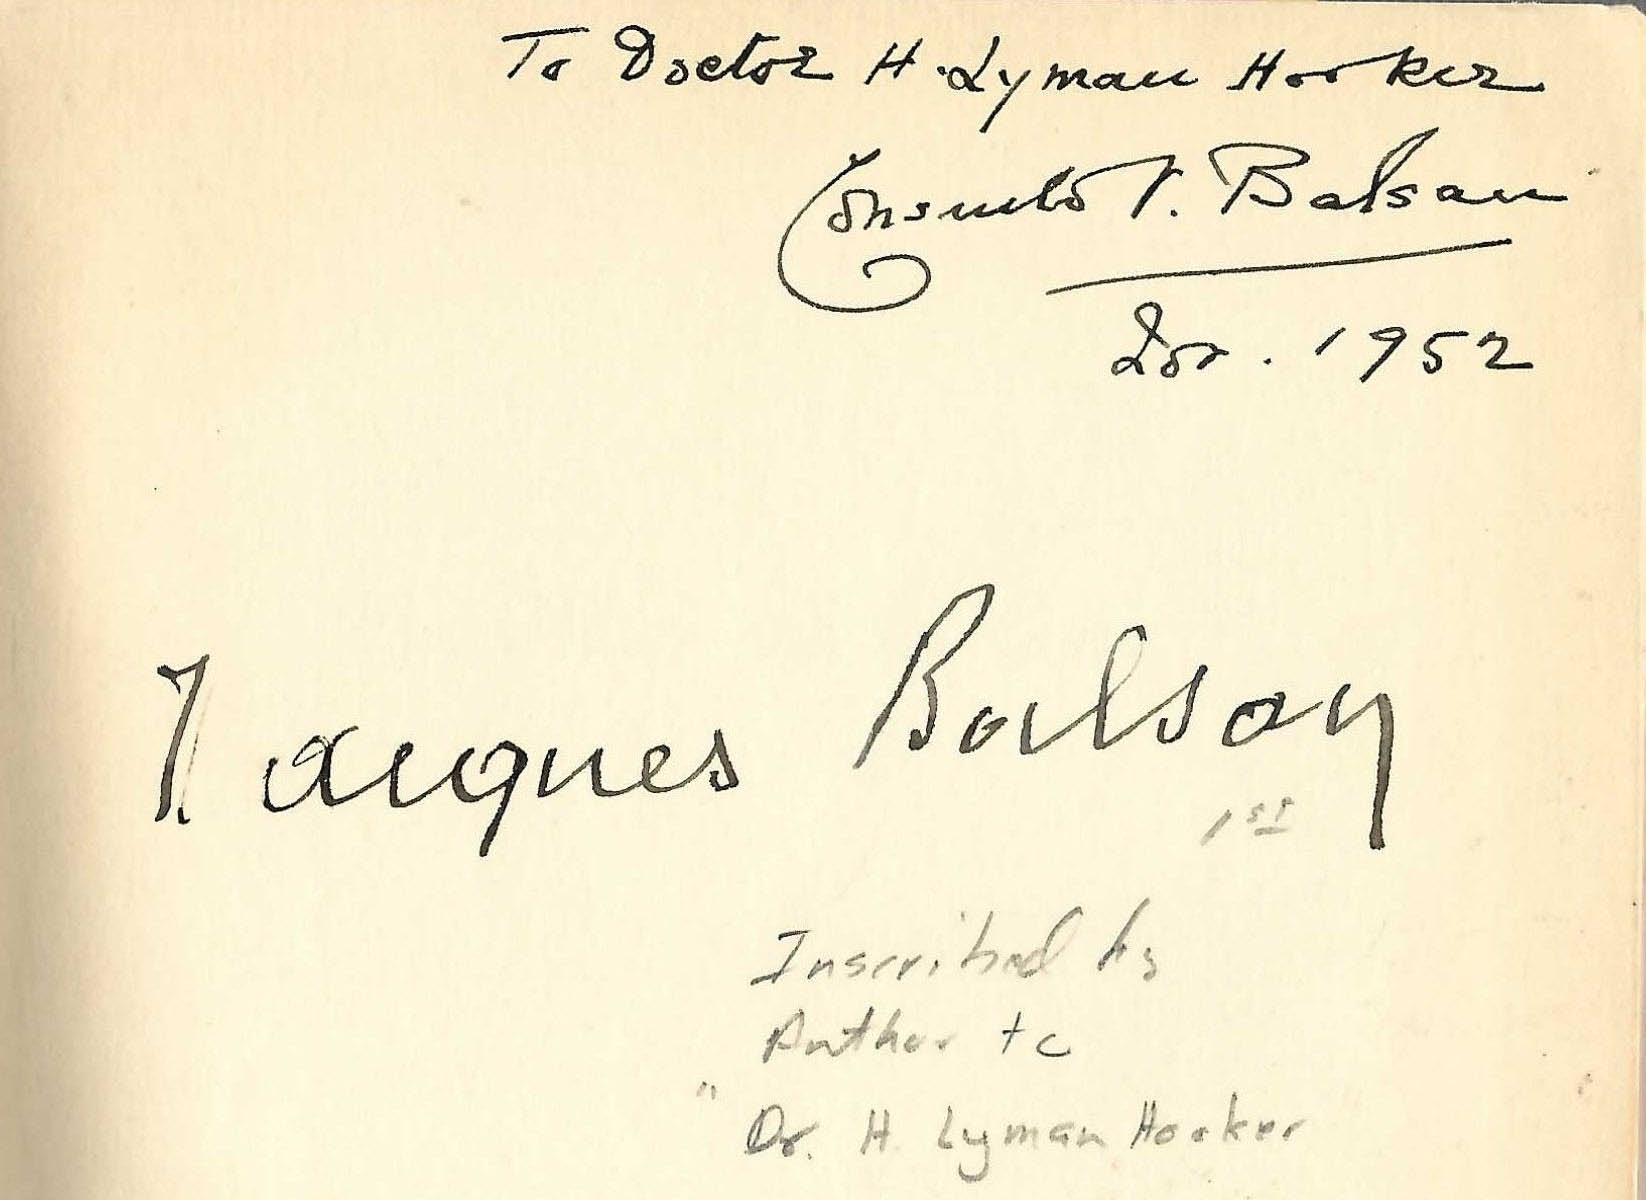 To Doctor H. Lyman Hooker
Consuelo V. Balsan
1952
Jacques Balsan
1st
Inscribed by
Author to
" Dr. H. Lyman Hooker